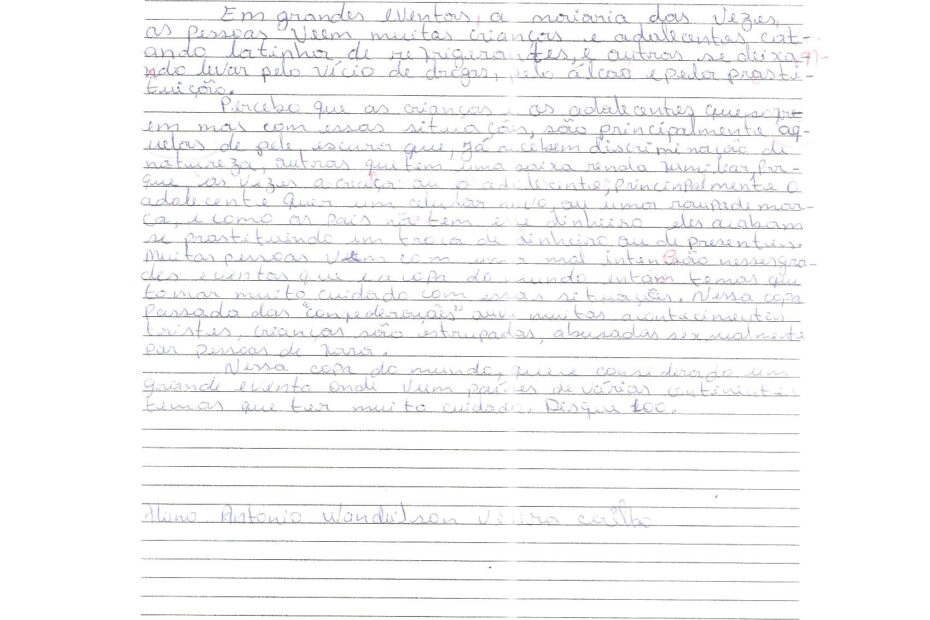 Em grandes eventos, a maioria das vezes,
as pessoas veem muitas crianças e adolecentes cat-
ando latinha de refrigerantes, e outros se deixa-
ndo levar pelo vício de drogas, pelo álcool e pela prosti-
tuição.
Percebo que as crianças e os adolecentes que sofre
em mas com essas situações, são principalmente aq-
uelas de pele escura que, já recebem discriminação de
natureza, outros que tem uma baixa renda familiar, Por-
que, as vezes a criança ou o adolecente, principalmente o
adolecente quer um celular novo, ou uma roupa de mar-
ca, e como os pais não tem esse dinheiro eles acabam
se prostituindo em troca de dinheiro ou de presentes.
Muitas pessoas vem com uma mal intenção nesses gra-
des eventos que e a copa do mundo então temos que
tomar muito cuidado com essas situações. Nessa copa
passada das "confederaçoẽs" ouve muitos acontecimentos
tristes, crianças são istrupadas, abusadas sexualmente
por pessoas de
Nessa copa do mundo, que e considerado um
grande evento onde vem países de vários continentes
temos que ter muito cuidado. Disque 100.
Aluno Antonio Wanderlson Vieira Coelho